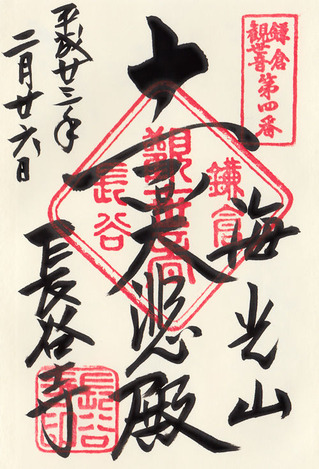 鎌倉
観世音
第四番
海光山
十一面大悲殿
長谷寺
平成廿三年
二月廿六日
鎌倉
観世音
長谷
長谷
寺印